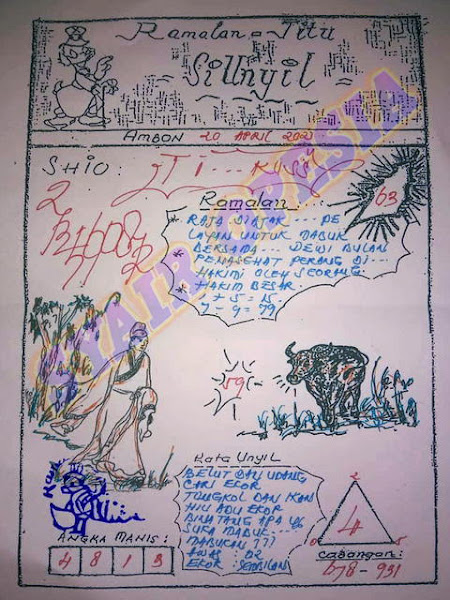 Ramalan = Jitu
Si Unyil
AMBON 20 APRIL 202
SHIO:
63
Ramalan:
* RAJA DIAJAK .... PE
LAYAN UNTUK MABUK
BERSAMA ... DEWI BULAN
* PENASEHAT PERANG DI ...
HAKIMI OLEH SEORANG
* HAKIM BESAR.
+ 5 = 15.
7 - 9 = 79
SYAIR OPESIA
59
Kata Unyil
BELUT DAN UDANG
CARI EKOR
TONGKOL DAN IKAN
HIU ADU EKOR
BINATANG APA YG
SUKA MABUK ....
MABUKAN ???
AWAS: 02
EKOR: SEMBILAN
2
4
0
5
ANGKA MANIS:
4 8 1 3
CABANGAN:
678 - 931